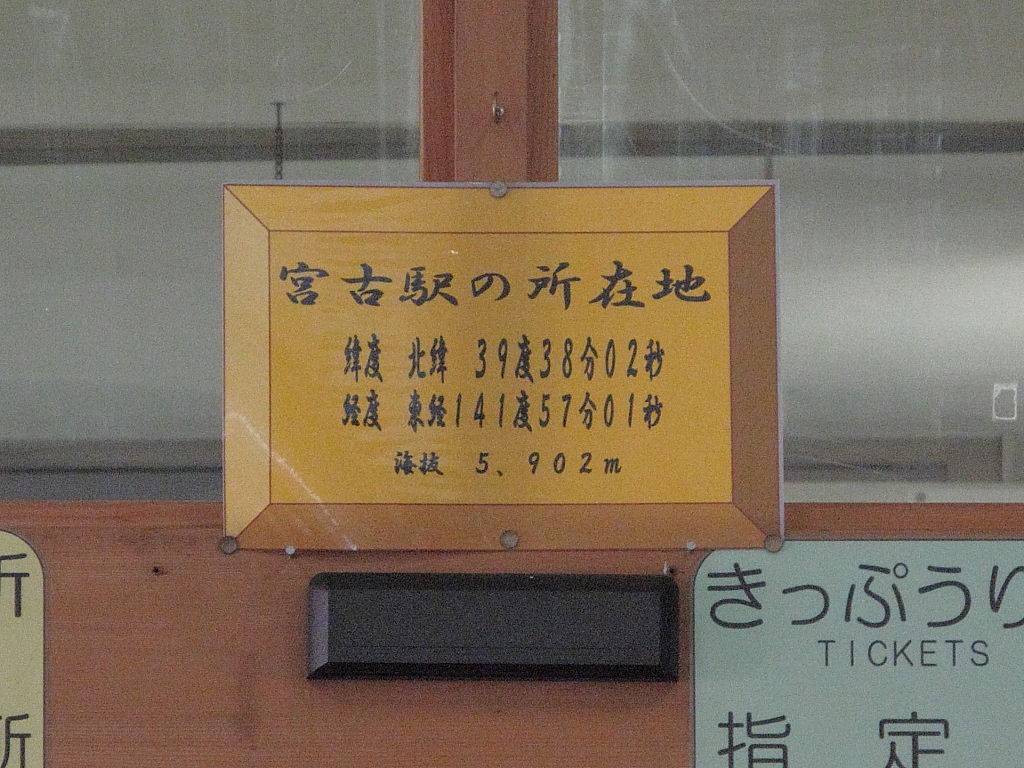 宮古駅の所在地
緯度 北緯 39度38分02秒
経度 東経141度57分01秒
海抜 5、902m
所
所
きっぷうり
TICKETS
指定